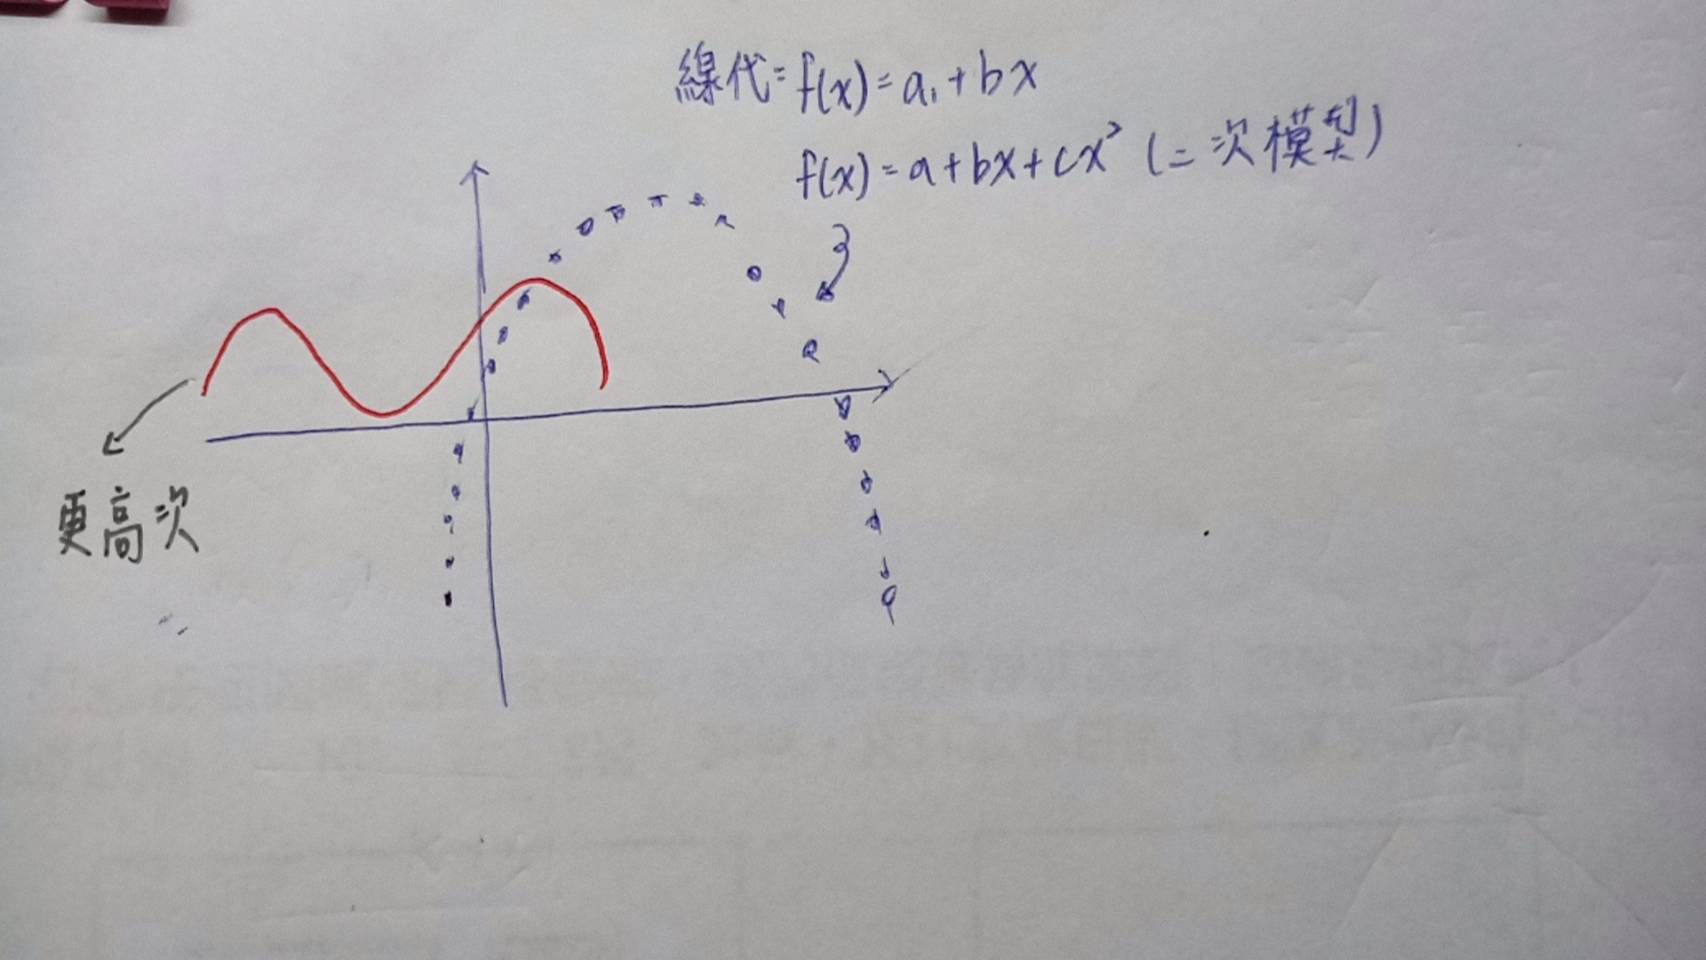 線代= f(x) = a₁+bx
f(x) = a+bx+cx² (二次模型)
更高次